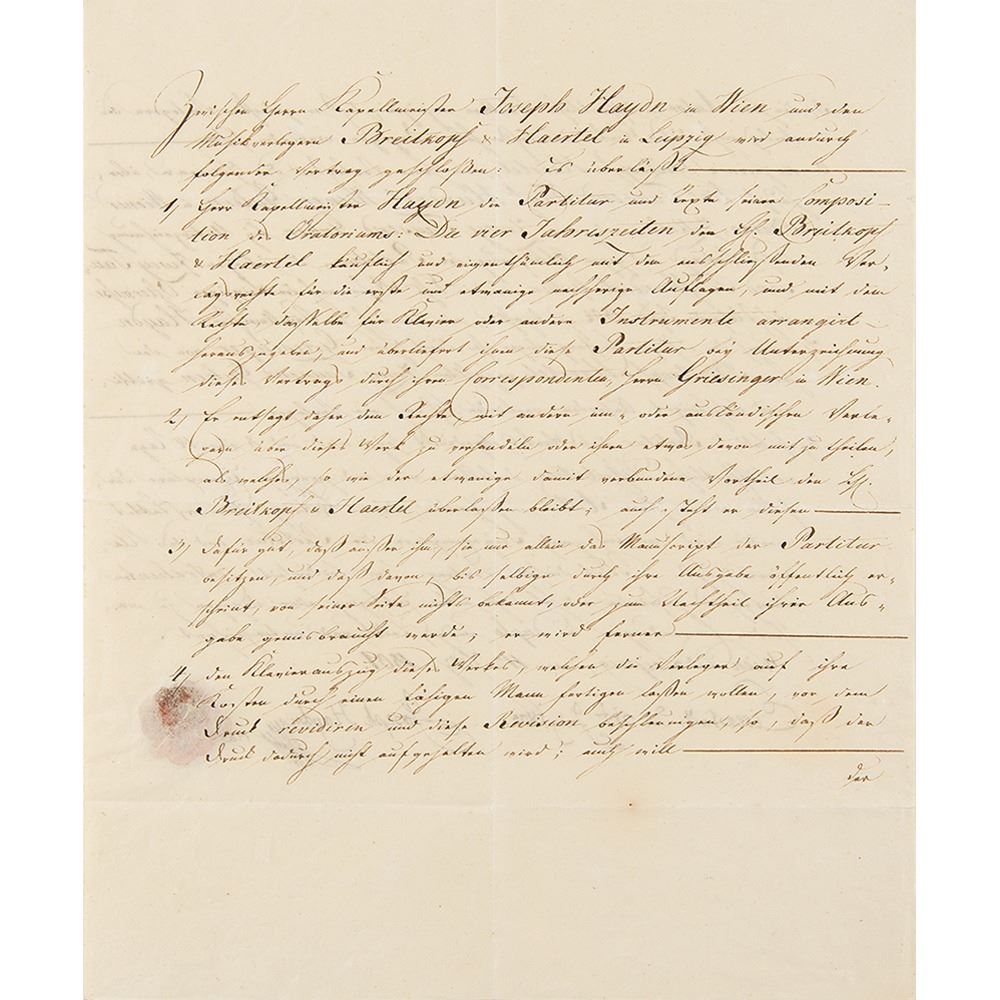 Zwischen Herrn Kapellmeister Joseph Haydn in Wien und den
Musikverlegern Breitkopf & Haertel in Leipzig wird andurch
folgender Vertrag geschloßen: Es überläßt
1) Herr Kapellmeister Haydn die Partitur und Texte seiner Composi-
tion des Oratoriums: Die vier Jahreszeiten den HH. Breitkopf
& Haertel käuflich und eigenthümlich mit dem ausschließenden Ver-
lagsrechte für die erste und etwanige nachherige Auflagen, und mit dem
Rechte, dasselbe für Klavier oder andere Instrumente arrangirt
herauszugeben, und überliefert ihnen diese Partitur bey Unterzeichnung
dieses Vertrags durch ihren Correspondenten, Herrn Griesinger in Wien.
2) Er entsagt daher dem Rechte, mit andern inn- oder ausländischen Verle-
gern über dieses Werk zu verhandeln oder ihnen etwas davon mit zu theilen,
als welches, so wie der etwanige damit verbundene Vortheil den HH.
Breitkopf u Haertel überlaßen bleibt; auch steht er diesen
3) dafür gut, daß außer ihm, sie nur allein das Manuscript der Partitur
besitzen, und daß davon, bis selbige durch ihre Ausgabe öffentlich er-
scheint, von seiner Seite nichts bekannt, oder zum Nachtheil ihrer Aus-
gabe gemisbraucht werde; er wird ferner
4) den Klavierauszug dieses Werkes, welchen die Verleger auf ihre
Kosten durch einen fähigen Mann fertigen laßen wollen, vor dem
Druck revidiren und diese Revision beschleunigen, so, daß der
Druck dadurch nicht aufgehalten wird; auch will
der